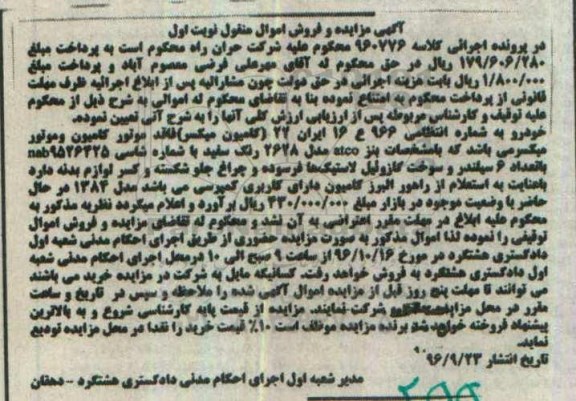 آگهی مزایده و فروش اموال منقول نوبت اول
در پرونده اجرائی کلاسه ۹۶۰۷۷۶ محکوم علیه شرکت حران راه محکوم است به پرداخت مبلغ
۱۷۹/۶۰۶/۲۸۰ ریال در حق محکوم له آقای مهرعلی فرضی معصوم آباد و پرداخت مبلغ
۱/۸۰۰/۰۰۰ ریال بابت هزینه اجرائی در حق دولت چون مشارالیه پس از ابلاغ اجرائیه ظرف مهلت
قانونی از پرداخت محکوم به امتناع نموده بنا به تقاضای محکوم له اموالی به شرح ذیل از محکوم
علیه توقیف و کارشناس مربوطه پس از ارزیابی ارزش کلی آنها را به شرح آتی تعیین نموده.
خودرو به شماره انتظامی ۹۶۶ ع ۱۶ ایران ۲۲ (کامیون میکسر) فاقد موتور کامیون وموتور
میکسرمی باشد که بامشخصات بنز atco مدل ۲۶۲۸ رنگ سفید با شماره شاسی nab۹۵۲۶۴۲۵
باتعداد ۶ سیلندر و سوخت گازوئیل لاستیک‌ها فرسوده و چراغ جلو شکسته و کسر لوازم بدنه دارد
باعنایت به استعلام از راهور البرز کامیون دارای کاربری کمپرسی می باشد مدل ۱۳۸۴ در حال
حاضر با وضعیت موجود در بازار مبلغ ۴۳۰/۰۰۰/۰۰۰ ریال برآورد و اعلام میگردد نظریه مذکور به
محکوم علیه ابلاغ در مهلت مقرر اعتراضی به آن نشد و محکوم له تقاضای مزایده و فروش اموال
توقیفی را نموده لذا اموال مذکور به صورت مزایده حضوری از طریق اجرای احکام مدنی شعبه اول
دادگستری هشتگرد در مورخ ۹۶/۱۰/۱۶ از ساعت ۹ صبح الی ۱۰ درمحل اجرای احکام مدنی شعبه
اول دادگستری هشتگرد به فروش خواهد رفت. کسانیکه مایل به شرکت در مزایده خرید می باشند
می توانند تا مهلت پنج روز قبل از مزایده اموال آگهی شده را ملاحظه و سپس در تاریخ و ساعت
مقرر در محل مزایده شرکت نمایند. مزایده از قیمت پایه کارشناسی شروع و به بالاترین
پیشنهاد فروخته خواهد شد برنده مزایده موظف است ۱۰٪ قیمت خرید را نقدا در محل مزایده تودیع
نماید.
تاریخ انتشار ۹۶/۹/۲۳
مدیر شعبه اول اجرای احکام مدنی دادگستری هشتگرد - دهقان